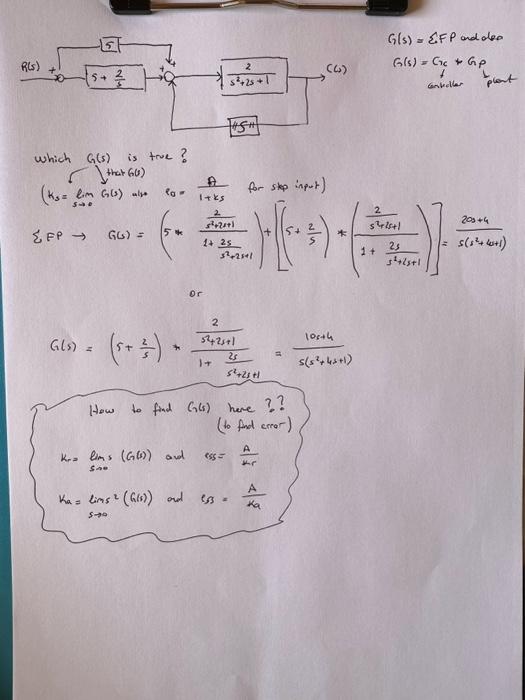 G(s) = ΣFP and also
G(s) = Gc * Gp
controller plant
R(s) + 5 + + 5 + 2/s 2/(s²+2s+1) C(s)
"S"
which G(s) is true?
that G(s)
(Ks = lim s→0 G(s) also e0 = A/(1+Ks) for step input)
ΣFP → G(s) = (5 * (2/(s²+2s+1))/(1 + 2s/(s²+2s+1))) + [(5 + 2/s) * ((2/(s²+2s+1))/(1 + 2s/(s²+2s+1)))] = (20s+4)/(s(s²+4s+1))
or
G(s) = (5 + 2/s) * (2/(s²+2s+1))/(1 + 2s/(s²+2s+1)) = (10s+4)/(s(s²+4s+1))
How to find G(s) here ??
(to find error)
Kr = lim s→0 s (G(s)) and ess = A/Kr
Ka = lim s→0 s² (G(s)) and ess = A/Ka